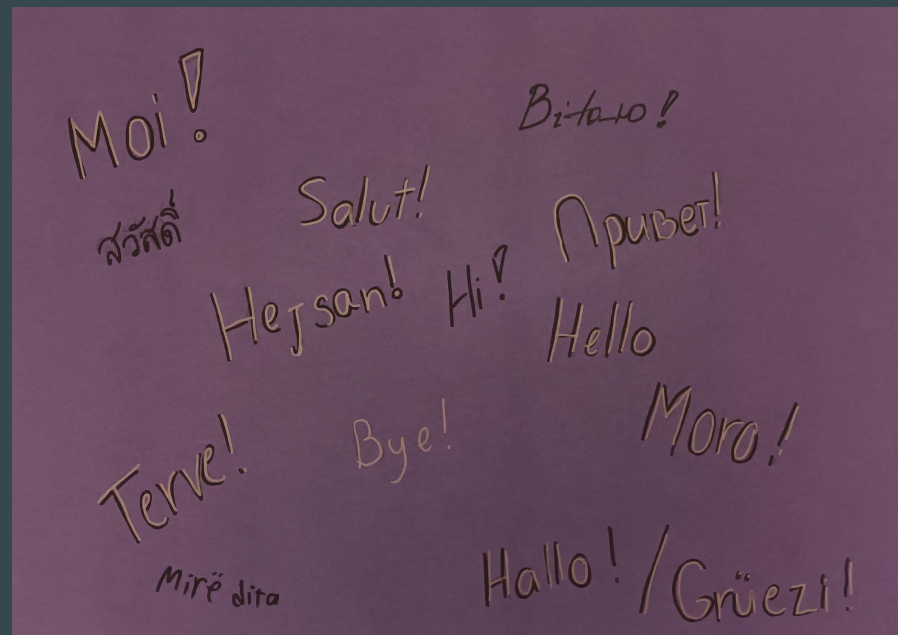 Moi!
Вітаю!
สวัสดี
Salut!
Привет!
Hejsan!
Hi!
Hello
Terve!
Bye!
Moro!
Mirë dita
Hallo! / Grüezi!